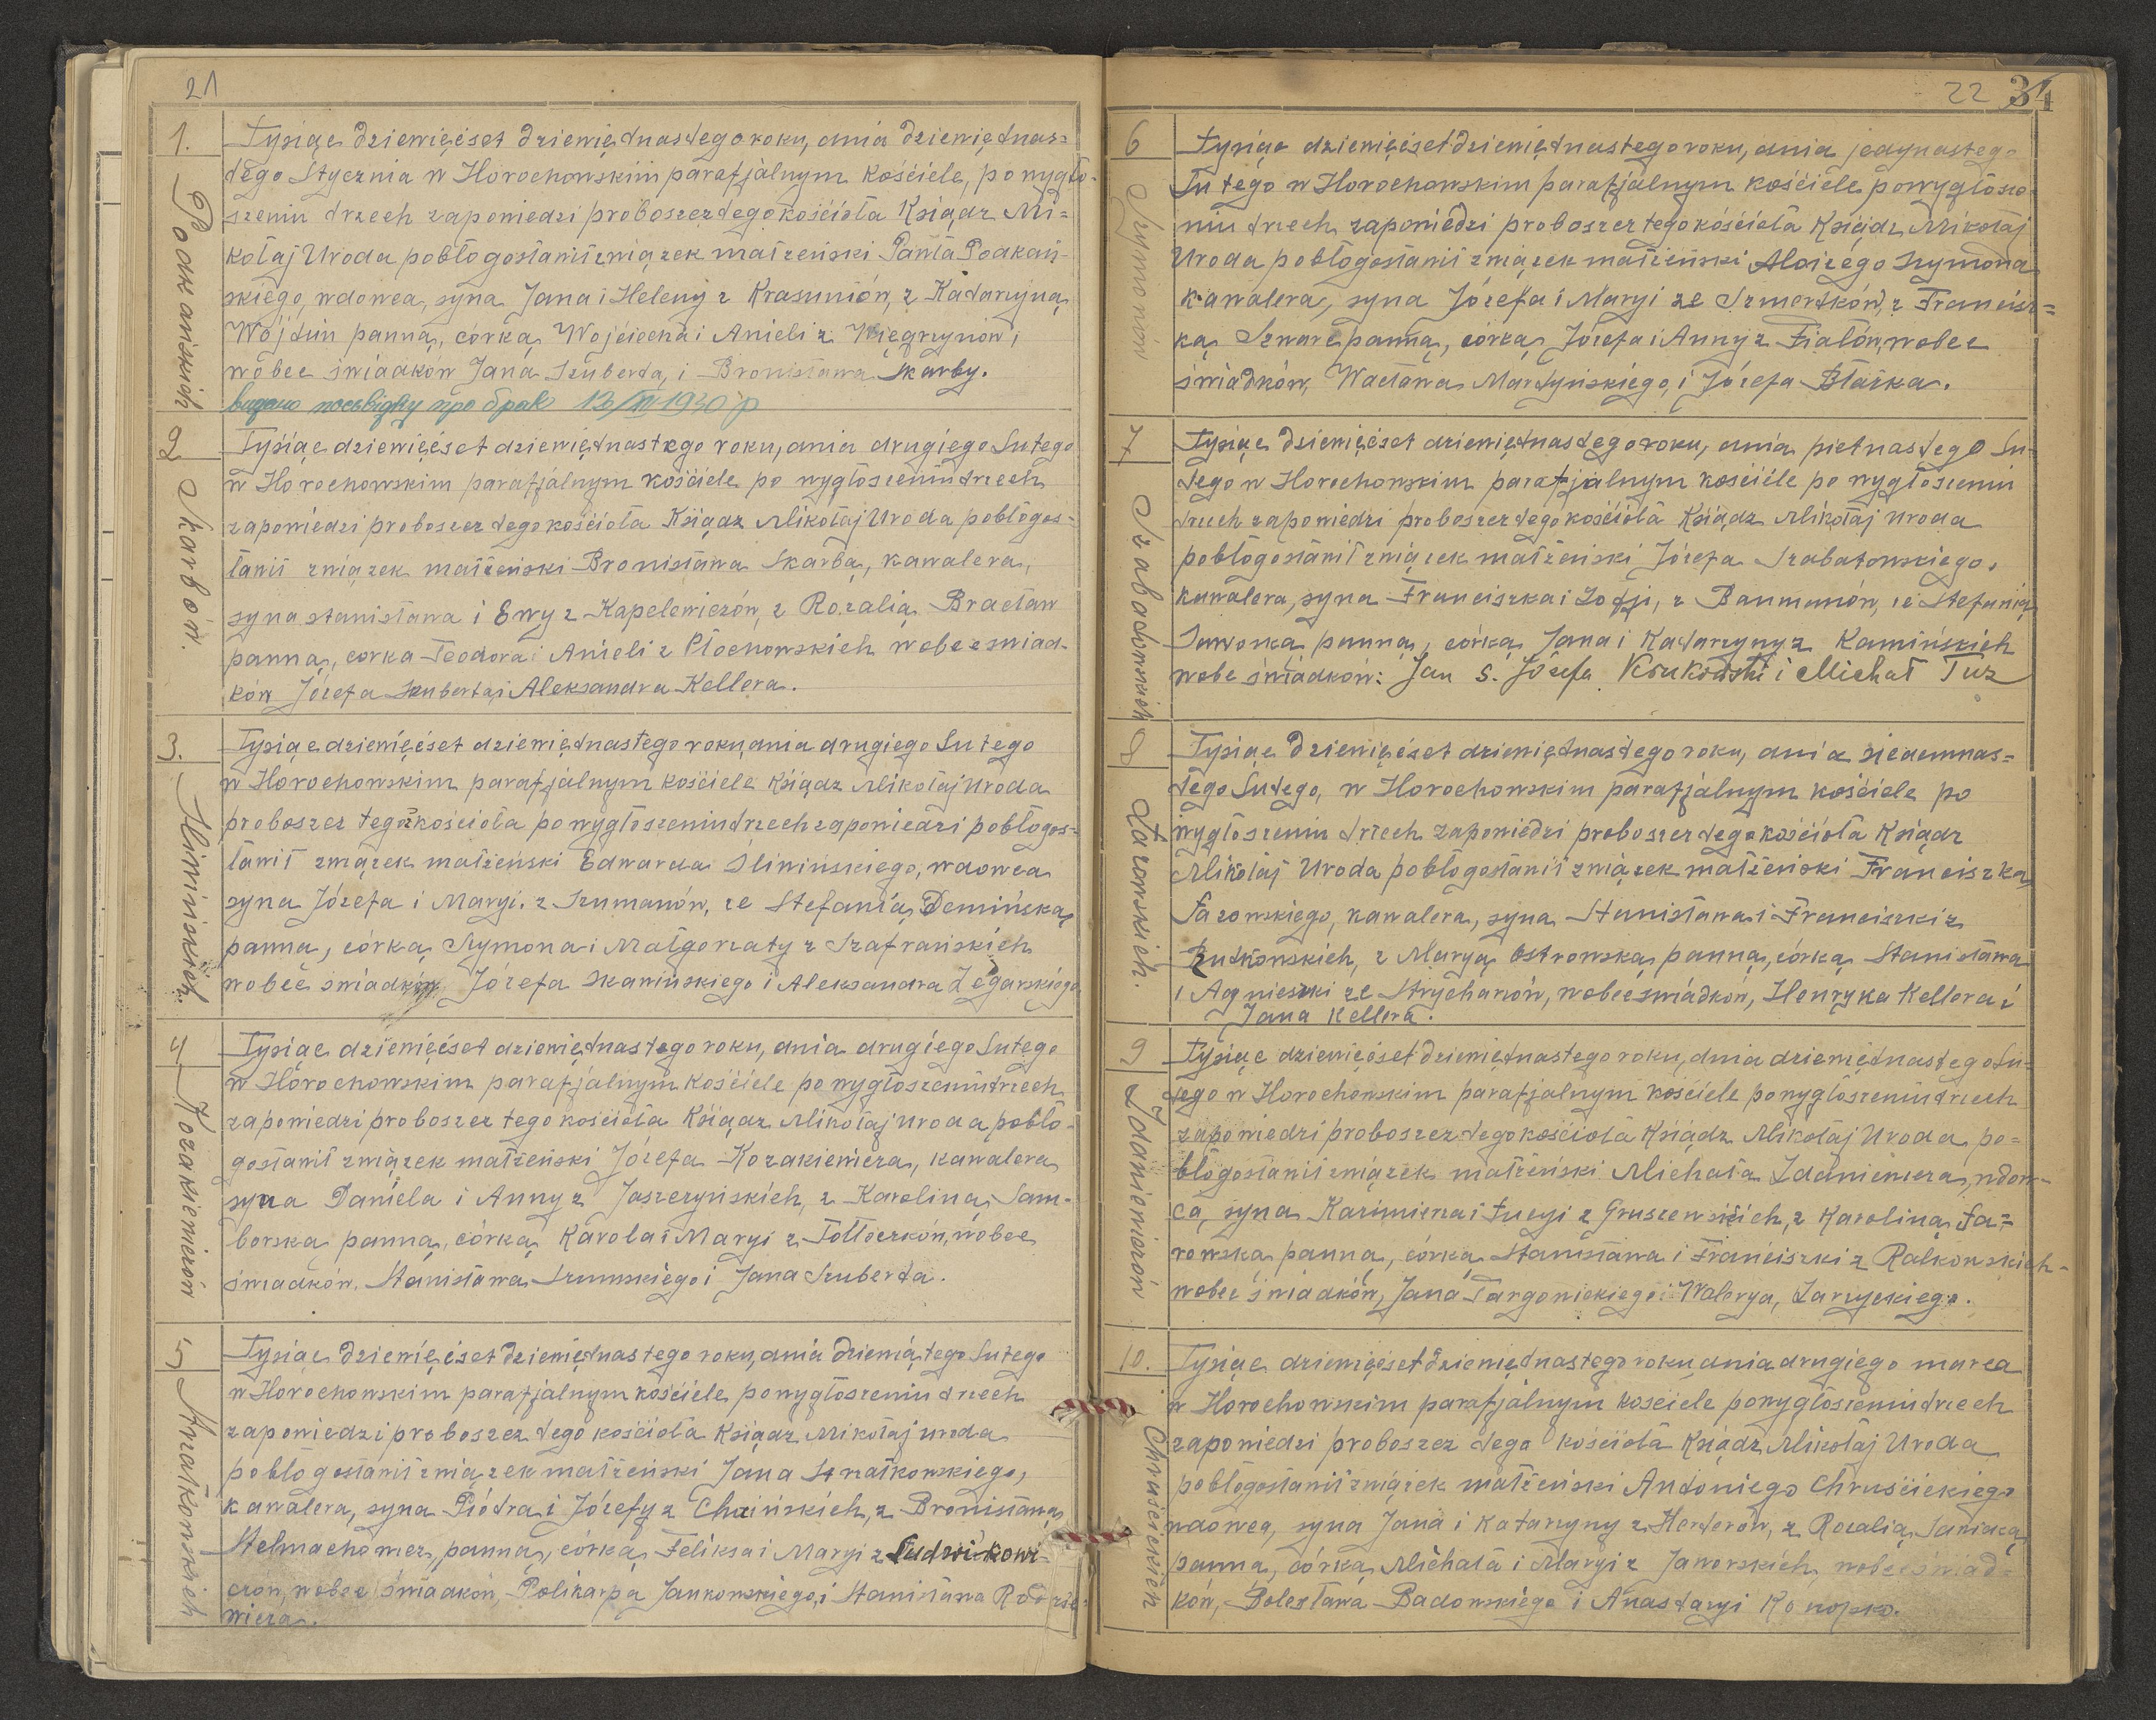 21
1.
Podkańskich
Tysiąc dziewięćset dziewiętnastego roku, dnia dziewiętnas=
tego Stycznia w Horochowskim parafjalnym kościele, po wygło-
szeniu trzech zapowiedzi proboszcz tego kościoła Ksiądz Mi=
kołaj Uroda pobłogosławił związek małżeński Pawła Podkań-
skiego, wdowca, syna Jana i Heleny z Krasuniów, z Katarzyną
Wójtun panną, córką Wojciecha i Anieli z Węgrzynów,
wobec świadków Jana Szuberta, i Bronisława Skarby.
видано посвідку про брак 13/XII 1930 р
2
Skarbów.
Tysiąc dziewięćset dziewiętnastego roku, dnia drugiego Lutego
w Horochowskim parafjalnym kościele po wygłoszeniu trzech
zapowiedzi proboszcz tego kościoła Ksiądz Mikołaj Uroda pobłogos-
ławił związek małżeński Bronisława Skarba, kawalera,
syna Stanisława i Ewy z Kapelewiczów, z Rozalią Bracław
panną, córką Teodora i Anieli z Płochowskich wobec świad-
ków Józefa Szuberta, i Aleksandra Kellera.
3.
Śliwińskich.
Tysiąc dziewięćset dziewiętnastego roku, dnia drugiego Lutego
w Horochowskim parafjalnym kościele Ksiądz Mikołaj Uroda
proboszcz tego kościoła po wygłoszeniu trzech zapowiedzi pobłogos-
ławił związek małżeński Edwarda Śliwińskiego, wdowca
syna Józefa i Maryi z Szumanów, ze Stefanią Demińską
panną, córką Szymona i Małgorzaty z Szafrańskich
wobec świadków Józefa Skawińskiego i Aleksandra Zegarskiego
4
Kozakiewiczów
Tysiąc dziewięćset dziewiętnastego roku, dnia drugiego Lutego
w Horochowskim parafjalnym kościele po wygłoszeniu trzech
zapowiedzi proboszcz tego kościoła Ksiądz Mikołaj Uroda pobło-
gosławił związek małżeński Józefa Kozakiewicza, kawalera
syna Daniela i Anny z Jaszczyńskich, z Karoliną Sam-
borską panną, córką Karola i Maryi z Tołłoczków, wobec
świadków. Stanisława Szumskiego i Jana Szuberta.
5
Śnatkowskich
Tysiąc dziewięćset dziewiętnastego roku, dnia dziewiątego Lutego
w Horochowskim parafjalnym kościele po wygłoszeniu trzech
zapowiedzi proboszcz tego kościoła Ksiądz Mikołaj Uroda
pobłogosławił związek małżeński Jana Śnatkowskiego,
kawalera, syna Piotra i Józefy z Chaińskich, z Bronisławą
Stelmachowicz, panną, córką Feliksa i Maryi z Ludwikowi-
czów, wobec świadków Polikarpa Jankowskiego, i Stanisława
wicza.
22 34
6
Szymonów
Tysiąc dziewięćset dziewiętnastego roku, dnia jedynastego
Lutego w Horochowskim parafjalnym kościele po wygłosze-
niu trzech zapowiedzi proboszcz tego kościoła Ksiądz Mikołaj
Uroda pobłogosławił związek małżeński Aloizego Szymona
kawalera, syna Józefa i Maryi ze Szmertków, z Francisz=
ką Szwarc panną, córką Józefa i Anny z Fialów, wobec
świadków, Wacława Martyńskiego, i Józefa Blaźka.
7
Szabatowskich
Tysiąc dziewięćset dziewiętnastego roku, dnia pietnastego Lu-
tego w Horochowskim parafjalnym kościele po wygłoszeniu
trzech zapowiedzi proboszcz tego kościoła Ksiądz Mikołaj Uroda
pobłogosławił związek małżeński Józefa Szabatowskiego,
kawalera, syna Franciszka i Zofji, z Baumanów, ze Stefanią
Sawonką panną, córką Jana i Katarzyny z Kamińskich
wobec świadków: Jan S. Józefa Krukowski i Michał Tuz
8
Łazowskich.
Tysiąc dziewięćset dziewiętnastego roku, dnia siedemnas=
tego Lutego, w Horochowskim parafjalnym kościele po
wygłoszeniu trzech zapowiedzi proboszcz tego kościoła Ksiądz
Mikołaj Uroda pobłogosławił związek małżeński Franciszka
Łazowskiego, kawalera, syna Stanisława i Franciszki z
Rutkowskich, z Maryą Ostrowską panną, córką Stanisława
i Agnieszki ze Strycharzów, wobec świadków, Henryka Kellera i
Jana Kellera.
9
Zdaniewiczów
Tysiąc dziewięćset dziewiętnastego roku, dnia dziewiętnastego Lu-
tego w Horochowskim parafjalnym kościele po wygłoszeniu trzech
zapowiedzi proboszcz tego kościoła Ksiądz Mikołaj Uroda po=
błogosławił związek małżeński Michała Zdaniewicza, wdow-
ca, syna Kazimierza i Łucyi z Gruszewskich, z Karoliną Ła=
zowską panną, córką Stanisława i Franciszki z Ratkowskich-
wobec świadków, Jana Targowickiego i Walerya, Zarzyckiego.
10.
Chruścickich
Tysiąc dziewięćset dziewiętnastego roku, dnia drugiego marca
w Horochowskim parafjalnym kościele po wygłoszeniu trzech
zapowiedzi proboszcz tego kościoła Ksiądz Mikołaj Uroda
pobłogosławił związek małżeński Antoniego Chruścickiego
wdowca, syna Jana i Katarzyny z Herterów, z Rozalią Saniacą
panną, córką Michała i Maryi z Jaworskich, wobec świad=
ków, Bolesława Badowskiego i Anastazyi Konopko.